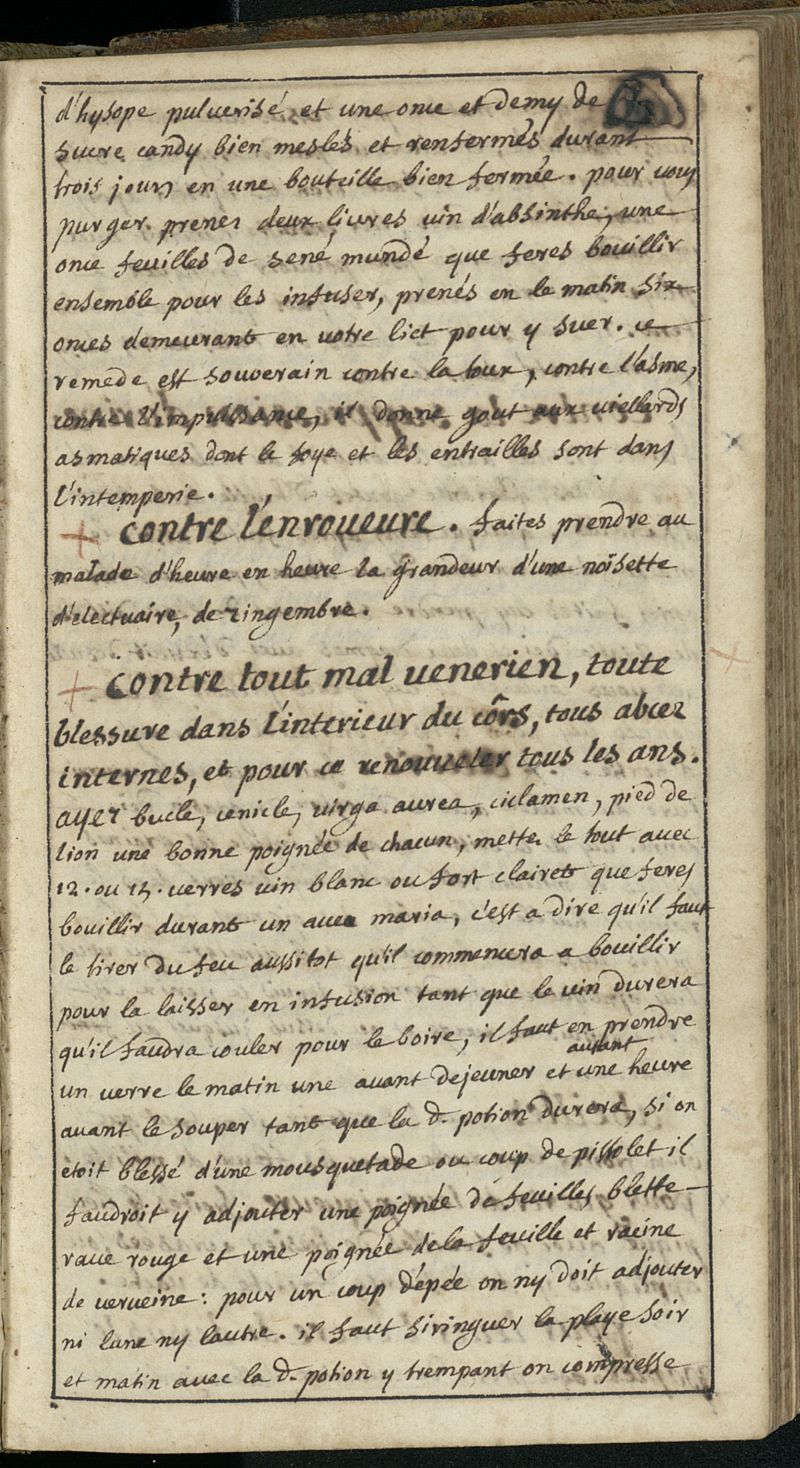 d'hysope pulverisé et une once et demy de
sucre candy bien meslés et renfermés durant
trois jours en une bouteille bien fermée. pour vous
purger. prenez deux livres vin d'absinthe, une
once feuilles de sené mundé que feres bouillir
ensemble pour les infuser, prenés en le matin six
onces demeurant en votre lict pour y suer. ce
remede est souverain contre la toux, contre l'asme,
contre l'impuissance, il donne gout aux viellards
asmatiques dont le foye et les entrailles sont dans
l'intemperie.
+ contre l'enroueure. faites prendre au
malade d'heure en heure la grandeur d'une noisette
d'electuaire, de zingembre.
+ contre tout mal venerien, toute
blessure dans l'interieur du côrs, tous abcez
internes, et pour ce renouveler tous les ans.
ayez bucle, cenicle, virga aurea, ciclamen, pied de
lion une bonne poignée de chacun, mettez le tout avec
12. ou 15. verres vin blanc ou fort clairet que feres
bouillir durant un ave maria, c'est a dire qu'il faut
le tirer du feu aussitot qu'il commencera a bouillir
pour la laisser en infusion tant que le vin durera
qu'il faudra couler pour le boire, il faut en prendre
un verre le matin une avant dejeuner et autant une heure
avant le souper tant que la d. potion durera, si on
etoit blessé d'une mousquetade ou coup de pistolet il
faudroit y adjouter une poignée de feuilles blette
rave rouge et une poignée de la feuille et racine
de verveine: pour un coup d'épée on ny doit adjouter
ni lune ny lautre. il faut siringuer la playe soir
et matin avec la d. potion y trempant on compresse